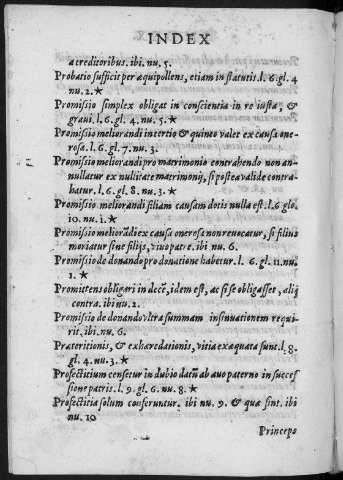 INDEX
a creditoribus. ibi. nu. 5.
Probatio sufficit per æquipollens, etiam in statutis. l. 6. gl. 4
nu. 2. ★
Promissio simplex obligat in conscientia in re iusta, &
graui. l. 6. gl. 4. nu. 5. ★
Promissio meliorandi in tertio & quinto valet ex causa one-
rosa. l. 6. gl. 7. nu. 3.
Promissio meliorandi pro matrimonio contrahendo non an-
nullatur ex nullitate matrimonij, si postea valide contra-
batur. l. 6. gl. 8. nu. 3. ★
Promissio meliorandi filiam causam dotis nulla est. l. 6 glo.
10. nu. 1. ★
Promissio meliorādi ex causa onerosa non reuocatur, si filius
moriatur sine filijs, viuo patre. ibi nu. 6.
Promissio de donando pro donatione habetur. l. 6. gl. 11. nu.
1. ★
Promittens obligari in decē, idem est, ac si se obligasset, alij
contra. ibi nu. 2.
Promissio de donando vltra summam insinuationem requi-
rit. ibi. nu. 6.
Præteritionis, & exhæredationis, vitia exæquata sunt. l. 8.
gl. 4. nu. 3. ★
Profectitium censetur in dubio datū ab auo paterno in succes
sione patris. l. 9. gl. 6. nu. 8. ★
Profectitia solum conferuntur. ibi nu. 9. & quæ sint. ibi
nu. 10
Princeps